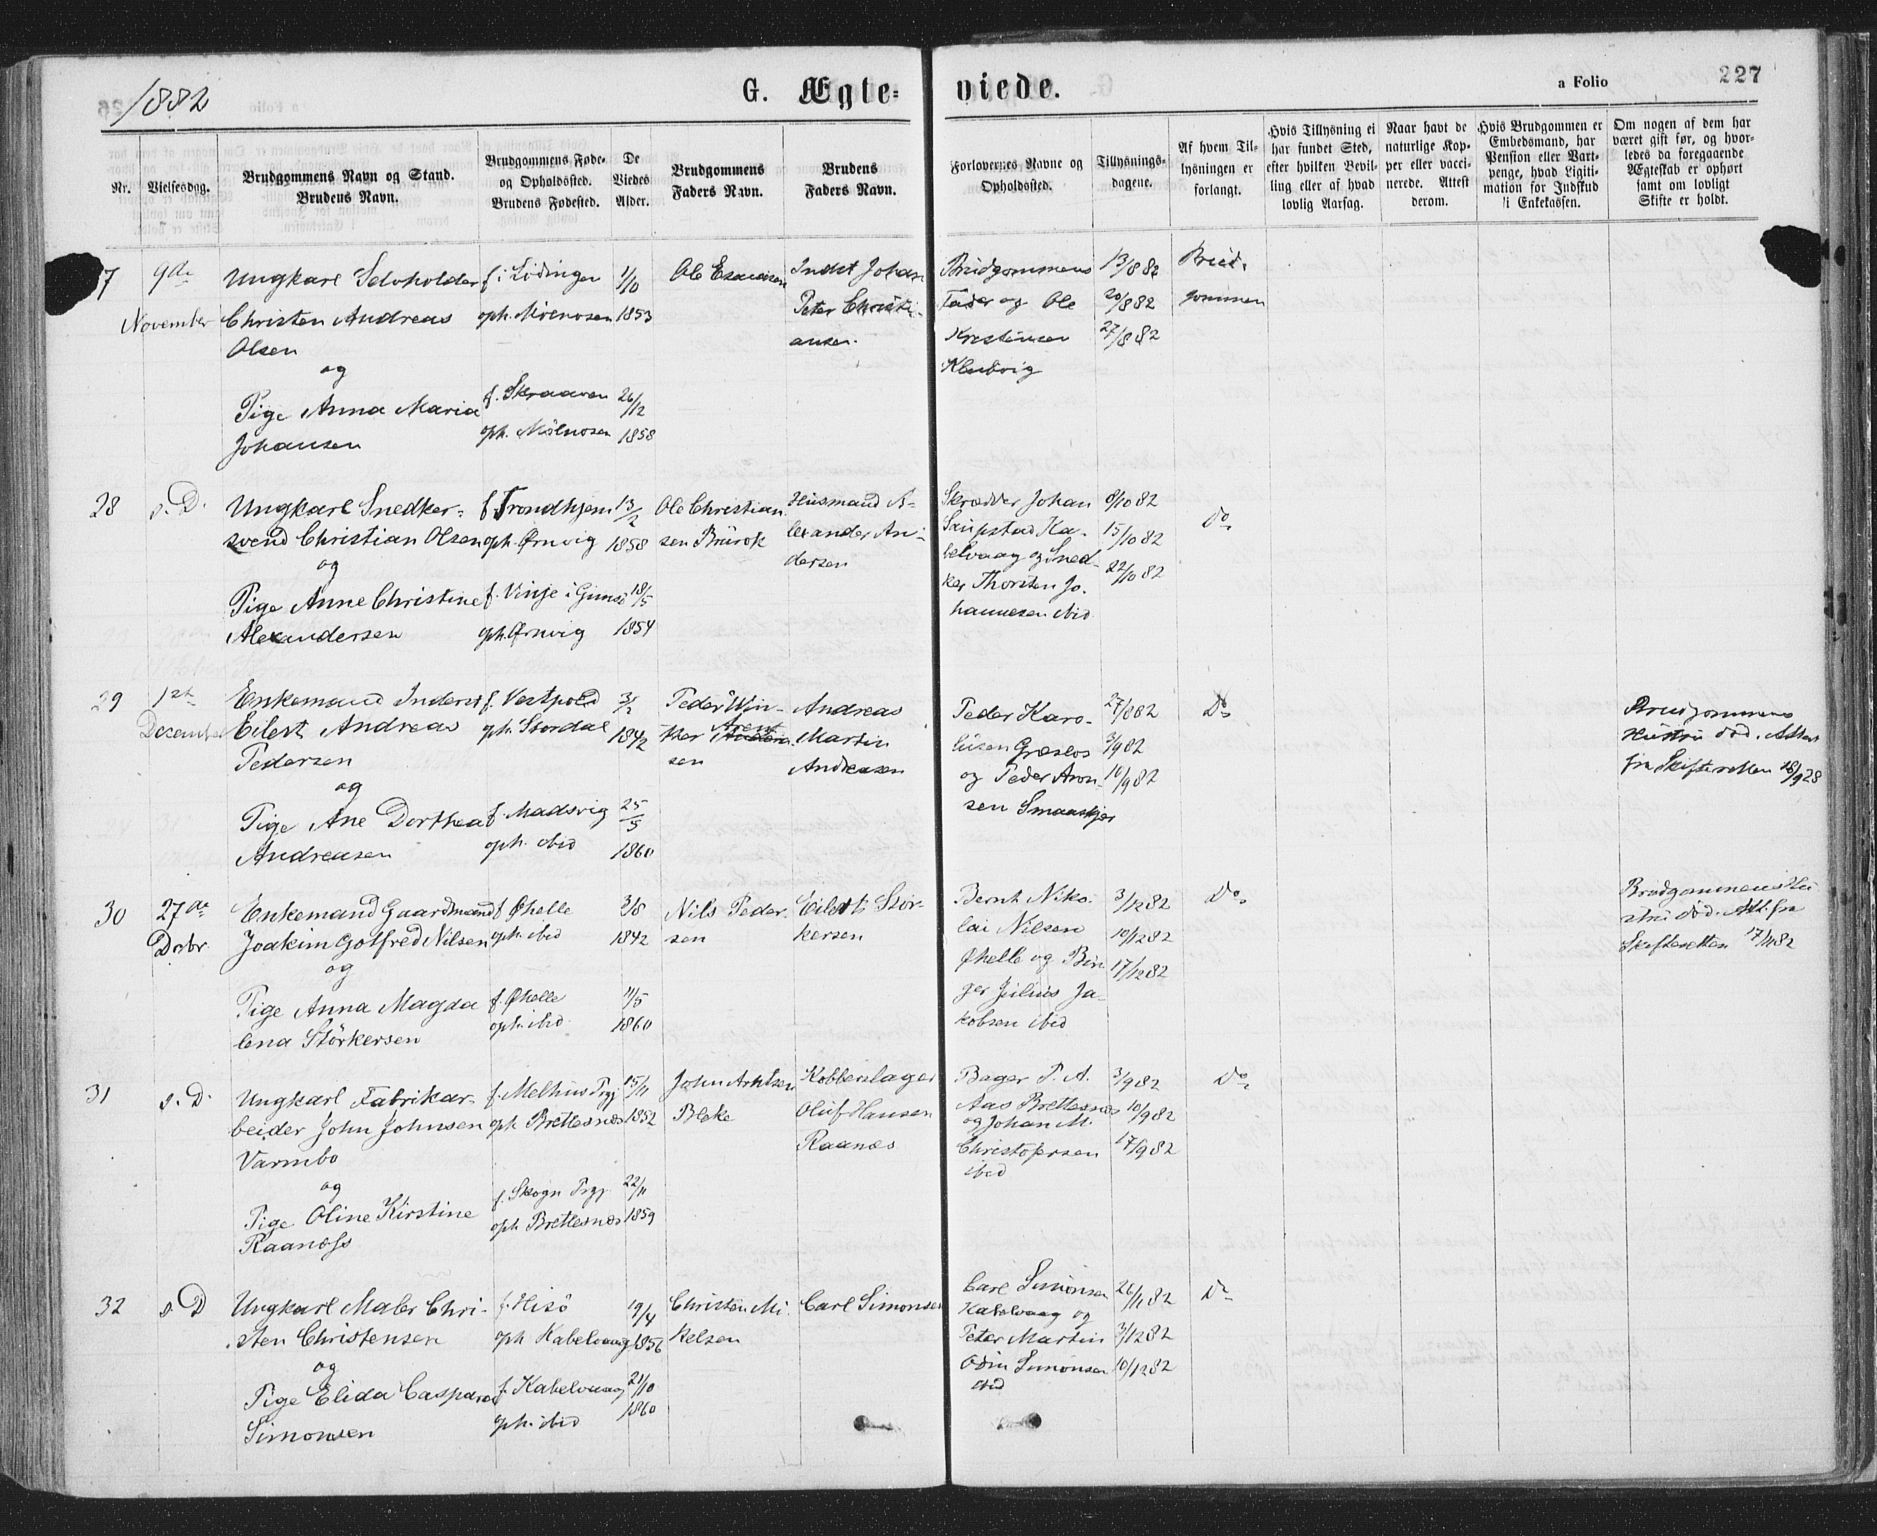 1882
G. Ægte-
viede.
a Folio
227
Nr.
Vielsesdag.
Brudgommens Navn og Stand.
Brudens Navn.
Brudgommens Føde-
og Opholdssted.
Brudens Fødested.
De
Viedes
Alder.
Brudgommens
Faders Navn.
Brudens
Faders Navn.
Forlovernes Navne og
Opholdssted.
Tillysnings-
dagene.
Af hvem Til-
lysningen er
forlangt.
Hvis Tillysning ei
har fundet Sted,
efter hvilken Bevil-
ling eller af hvad
lovlig Aarsag.
Naar havt de
naturlige Kop-
per eller vacci-
nerede. Attest
derom.
Hvis Brudgommen er
Embedsmand, har
Pension eller Vart-
penge, hvad Legiti-
mation for Indskud
i Enkekassen.
Om nogen af dem har
været gift før, og hvor-
ledes da foregaaende
Ægteskab er ophørt
samt om lovligt
Skifte er holdt.
7
9de
November
Ungkarl Selvholder
Christen Andreas
Olsen
og
Pige Anna Maria
Johansen
f. i Lødingen
oph. Mölnosen
f. Skraaven
oph. Mölnosen
1/10
1853
26/12
1858
Ole
Indst Johan
Peter Christi-
ansen.
Brudgommens
Fader og Ole
Kristensen
13/8 82
20/8 82
27/8 82
Brud-
gommen
28
s. D.
Ungkarl Snedker-
svend Christian Olsen
og
Pige Anne Christine
Alexandersen
f. Trondhjem
oph. Ørnvig
f. Vinje i Gimsö
oph. Ørnvig
13/2
1858
18/5
1854
Ole Christian
sen Brürok
Husmand A-
lexander An-
dersen
Skrædder Johan
Saupstad Ka-
belvaag og Sned-
ker Thorsten Jo-
hannesen ibid
8/10 82
15/10 82
22/10 82
Do
29
1ste
December
Enkemand Inderst
Eilert Andreas
Pedersen
og
Pige Ane Dorthea
Andreasen
f. Vestpold
oph. Stordal
f. Madsvig
oph. ibid
3/2
1842
25/5
1860
Peder Win-
ther Arent
sen
Andreas
Martin
Andreasen
Peder Karo-
liusen Græslos
og Peder Aron-
sen Smaaskjær
27/8 82
3/9 82
10/9 82
Do
Brudgommens
Hustru död. Attest
fra Skifteretten 28/9 28
30
27de
Decbr.
Enkemand Gaardmand
Joakim Gotfred Nilsen
og
Pige Anna Magda
lena Störkersen
f. Øhelle
oph. ibid
f. Øhelle
oph. ibid.
3/8
1842
11/5
1860
Nils Peder-
sen
Eilert Stör-
kersen
Bernt Niko-
lai Nilsen
Øhelle og Bir-
ger Julius Ja-
kobsen ibid
3/12 82
10/12 82
17/12 82
Do
Brudgommens Hu
stru död. Att. fra
Skifteretten 17/11 82
31
s. D.
Ungkarl Fabrikar-
beider John Johnsen
Varmbo
og
Pige Oline Kirstine
Raanæss
f. Melhus Prgj.
oph. Brettesnæs
f. Skogn Prgj.
oph. Brettesnæs
15/11
1852
22/11
1859
John Arntsen
Bleke
Kobberslager
Oluf Hansen
Raanæs
Bager P. A.
Aas Brettesnæs
og Johan M.
Christopersen
ibid
3/9 82
10/9 82
17/9 82
Do
32
s. D
Ungkarl Maler Chri-
sten Christensen
og
Pige Elida Caspara
Simonsen
f. Hisö
oph Kabelvaag
f. Kabelvaag
oph. ibid
19/4
1856
21/10
1860
Christen Mi
kelsen
Carl Simonsen
Carl Simonsen
Kabelvaag og
Peter Martin
Odin Simonsen
ibid
26/11 82
3/12 82
10/12 82
Do